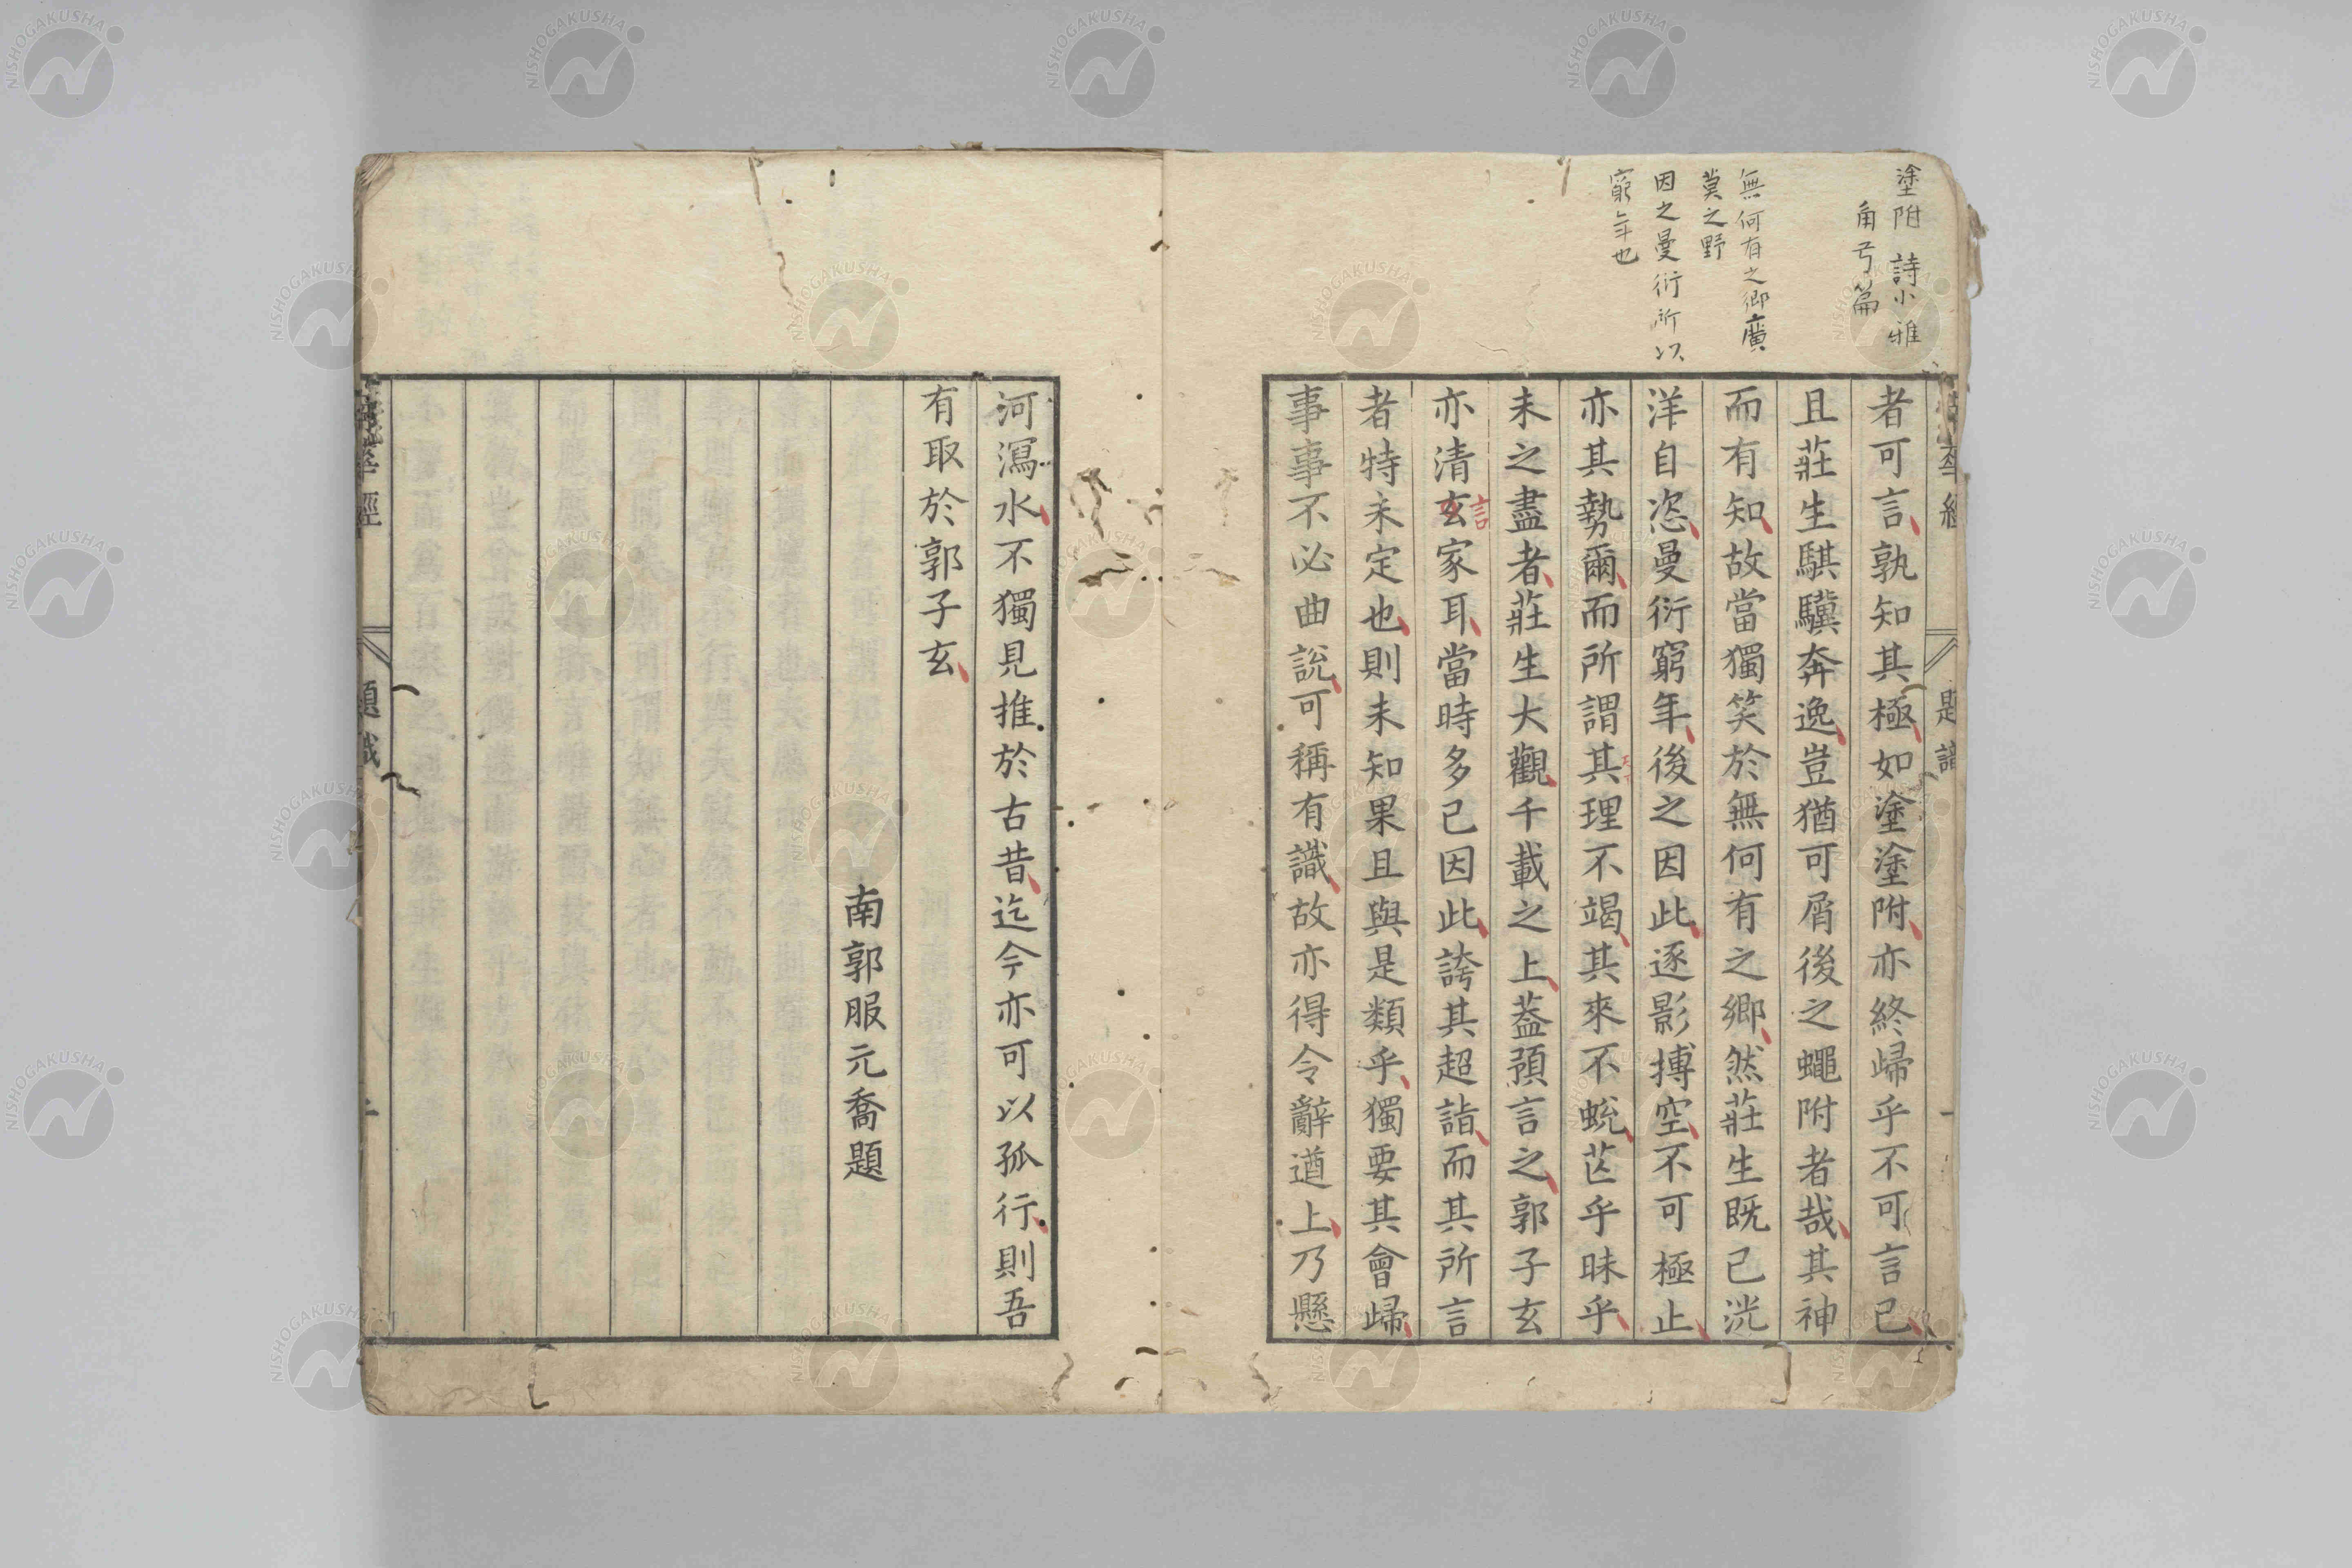 塗附 詩小雅
角弓篇
無何有之鄉廣
莫之野
因之曼衍所以
窮年也
者可言孰知其極如塗塗附亦終歸乎不可言已
且莊生騏驥奔逸豈猶可屑後之蠅附者哉其神
而有知故當獨笑於無何有之鄉然莊生既已洸
洋自恣曼衍窮年後之因此逐影搏空不可極止
亦其勢爾而所謂其理不竭其來不蛻芒乎昧乎
未之盡者莊生大觀千載之上蓋預言之郭子玄
亦清玄家耳當時多已因此誇其超詣而其所言
言
者特未定也則未知果且與是類乎獨要其會歸
事事不必曲説可稱有識故亦得令辭遒上乃懸
題識
河瀉水不獨見推於古昔迄今亦可以孤行則吾
有取於郭子玄
南郭服元喬題
經
NISHOGAKUSHA